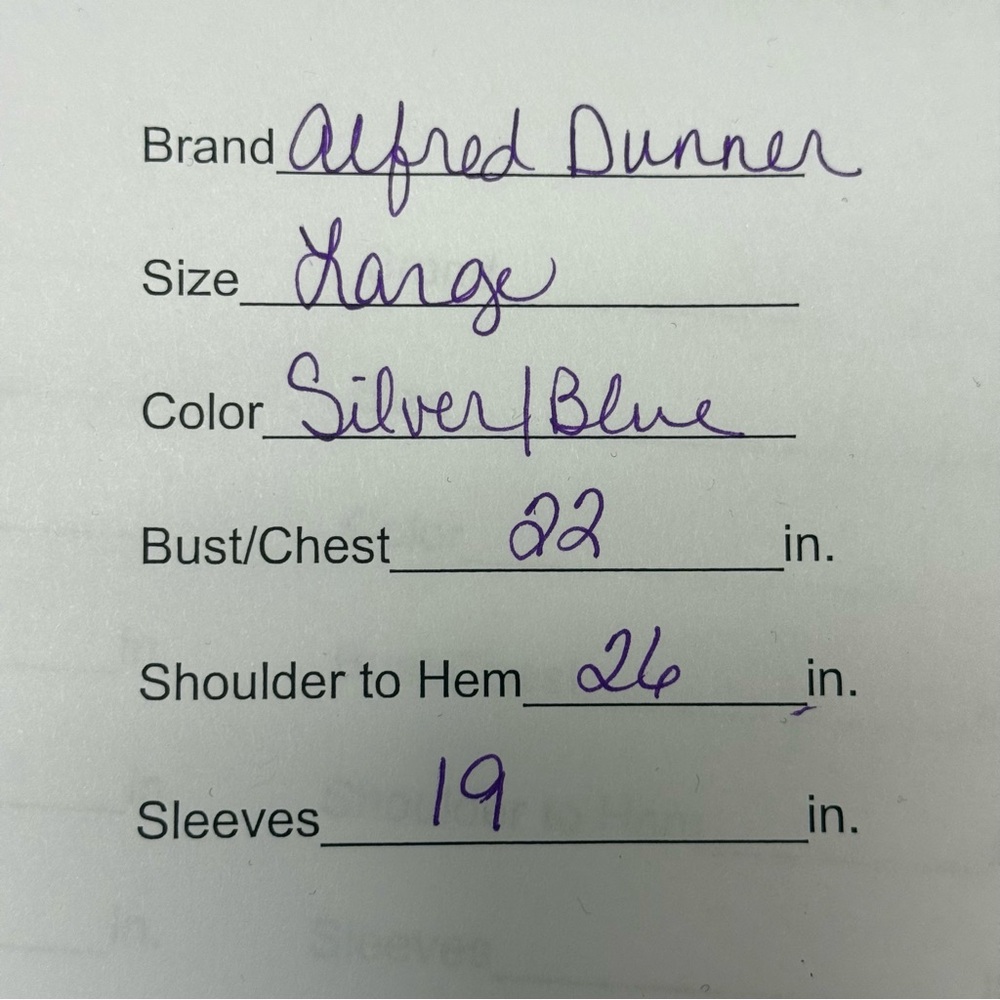 Brand Alfred Dunner
Size Large
Color Silver/Blue
Bust/Chest 22 in.
Shoulder to Hem 26 in.
Sleeves 19 in.